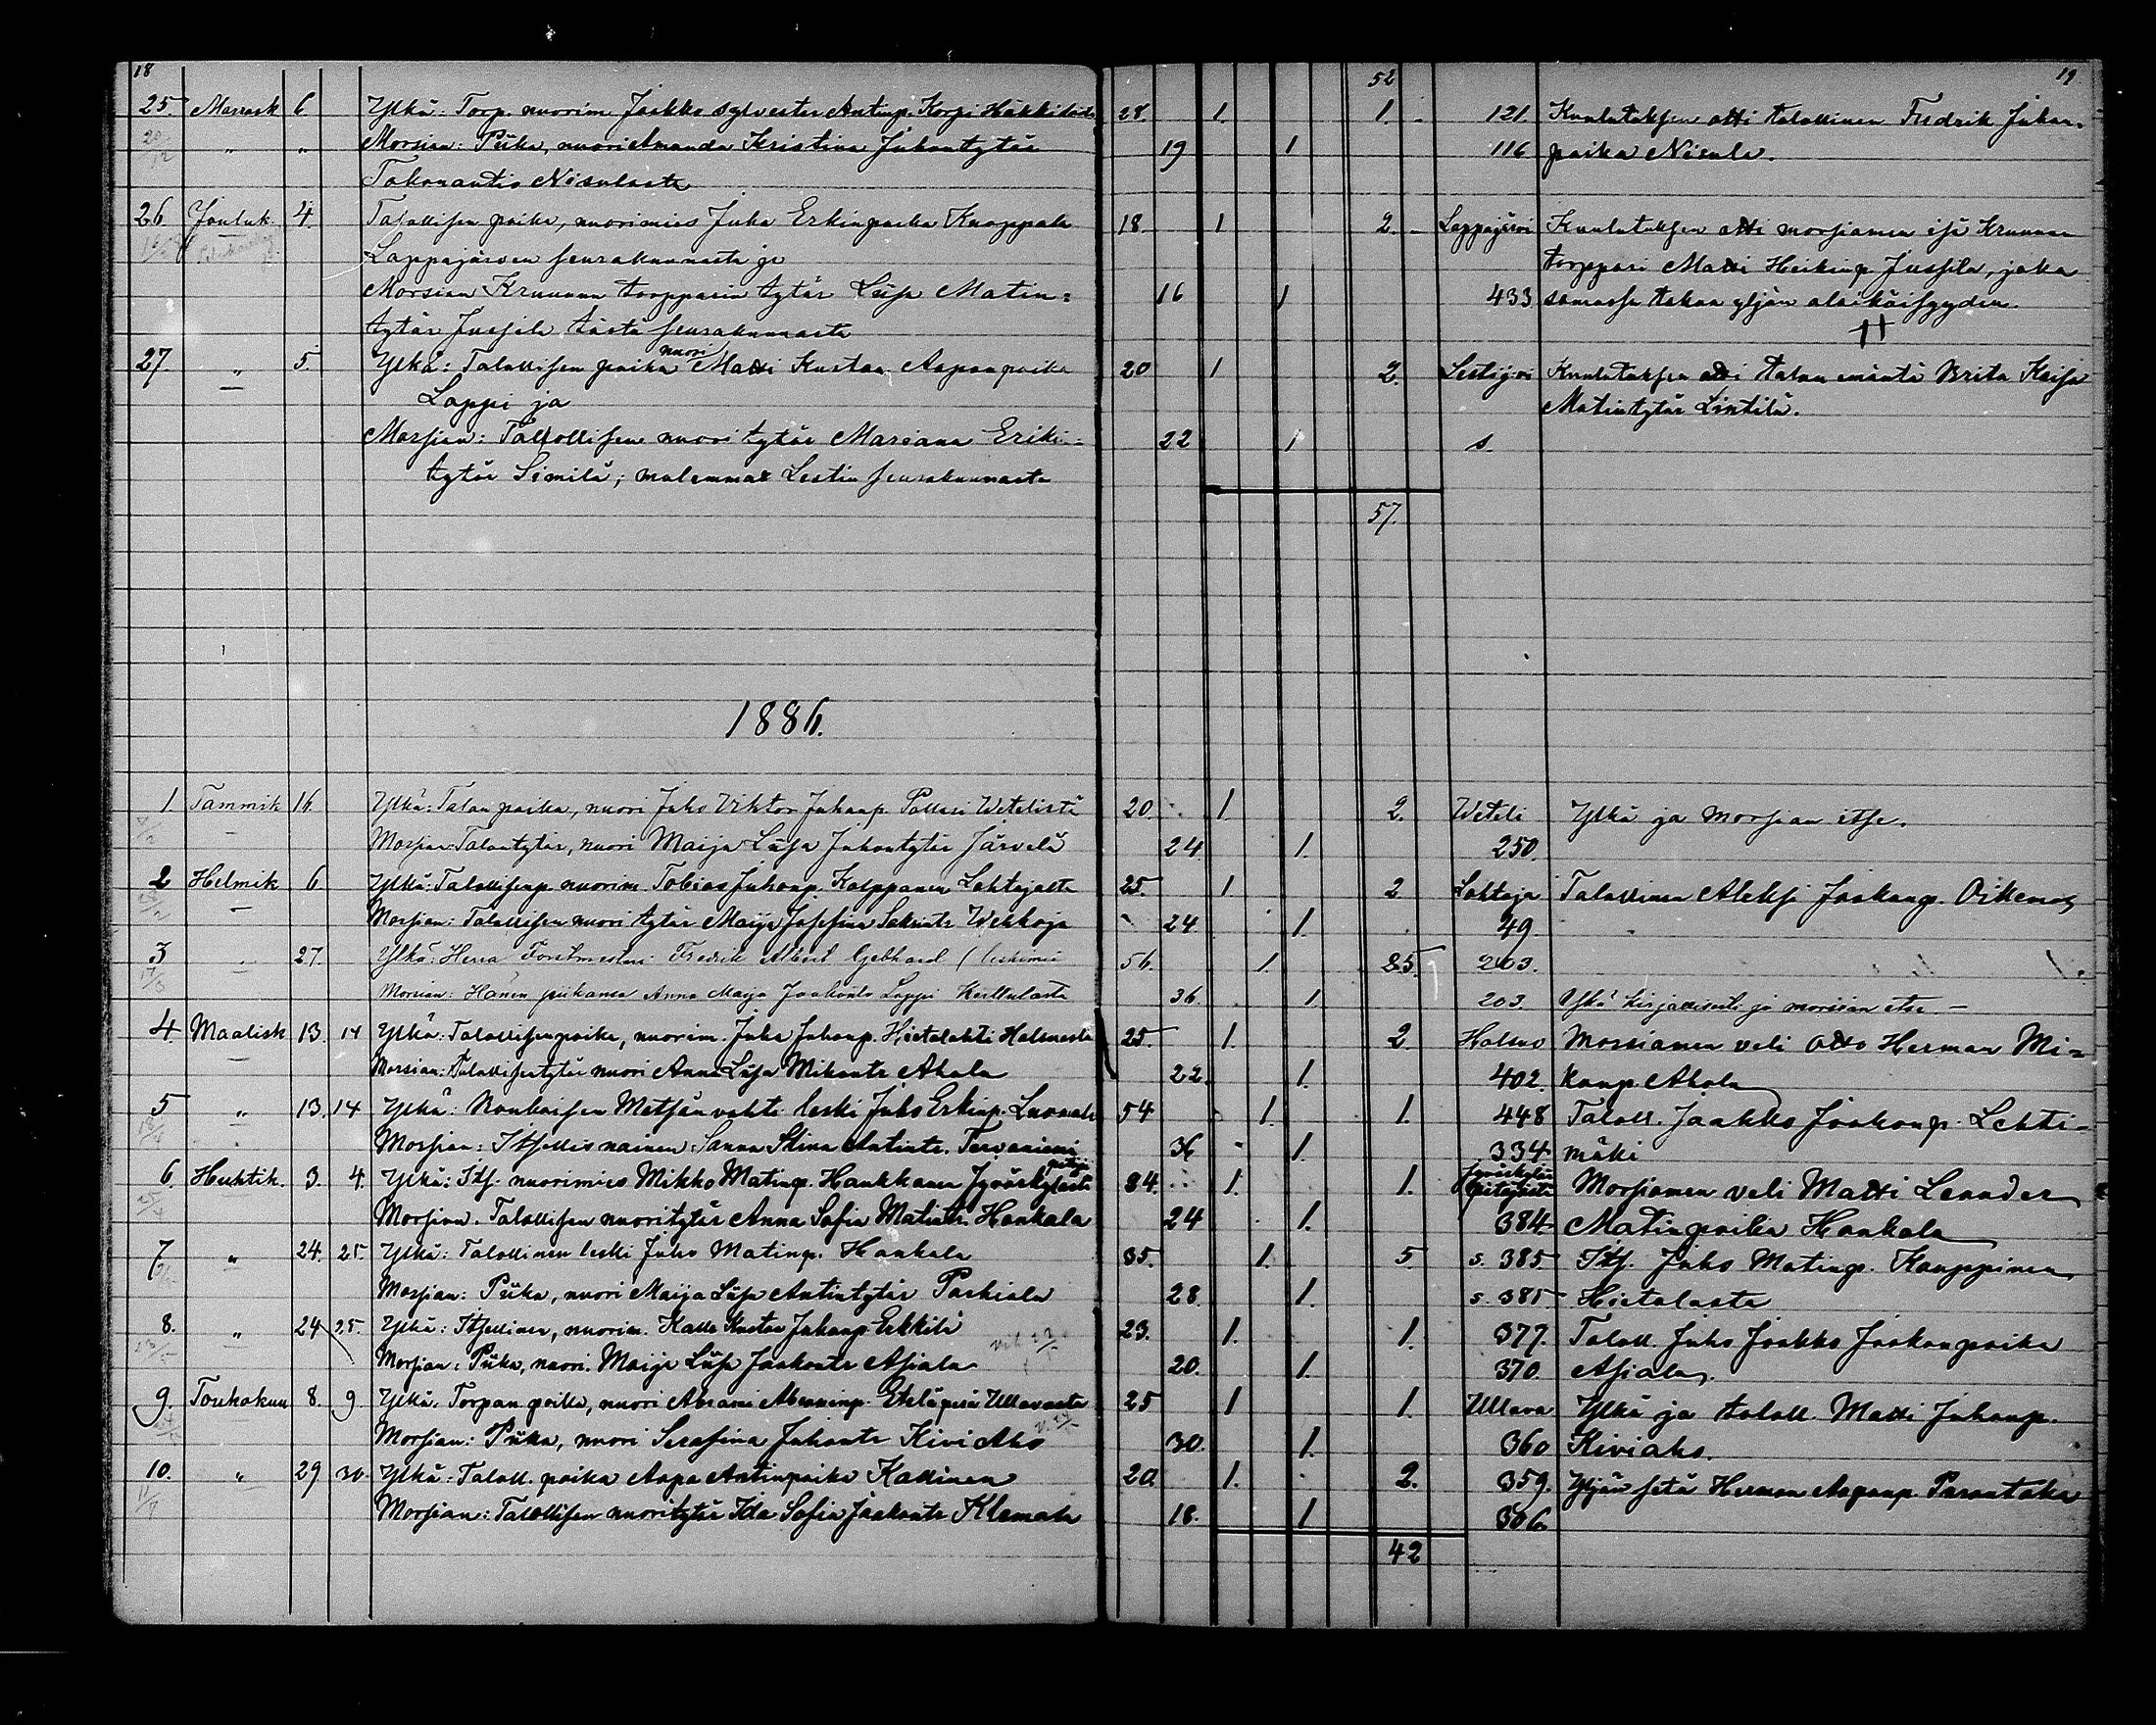 18
25. Marrask 6 Ylkä: Torp. nuorim. Jaakko Sylvester Antinp. Korpi
20/12 " " Morsian: Piika, nuori Amanda Kristina Juhontytär
Nisulasta
26 Jouluk. 4. Talollisen poika, nuorimies Juha Erkinpoika Knuppala
Lappajärven seurakunnasta ja
Morsian Kruunun torpparin tytär Liisa Matin=
tytär Jussila tästä seurakunnasta
27. " 5. Ylkä: Talollisen poika nuori Matti Kustaa Aapanpoika
Lappi ja
Morsian: Talollisen nuori tytär Mariana Erikin=
tytär Similä; molemmat Lestin seurakunnasta
1886.
1. Tammik 16. Ylkä: Talon poika, nuori Juho Viktor Juhanp. Wetelistä
Morsian: Talontytär, nuori Maija Liisa Juhontytär Järvelä
2 Helmik 6. Ylkä: Talollisenp. nuorim. Tobias Juhonp. Kalppanen Lohtajalta
Morsian: Talollisen nuori tytär Maija Josefina Wehkoja
3 " 27. Ylkä: Herra Forstmestari Fredrik Albert Gebhard (leskimies
Morsian: Hänen piikansa Anna Maija Jaakontr Lappi
4. Maalisk 13. 14 Ylkä: Talollisenpoika, nuorim. Juha Juhanp. Hietalahti Halsuasta
Morsian: Talollisentytär nuori Anna Liisa Mikontr Ahola
5 " 13. 14 Ylkä: Metsänvahti leski Juho Erkinp.
Morsian: Itsellis nainen Sanna Stina Antintr. Tervaniemi
6. Huhtik. 3. 4. Ylkä: Its. nuorimies Mikko Matinp. Haukkanen Jyväskylästä
Morsian. Talollisen nuoritytär Anna Sofia Matintr. Hankala
7 " 24. 25. Ylkä: Talollinen leski Juho Matinp. Hankala
Morsian: Piika, nuori Maija Liisa Antintytär Paskiala
8. " 24 25. Ylkä: Itsellinen, nuorim. Kalle Kustaa Juhanp. Erkkilä
Morsian: Piika, nuori. Maija Liisa Jaakontr Asiala
9. Toukokuu 8. 9 Ylkä. Torpan poika, nuori Abrami Eteläperä Ullavasta
Morsian: Piika, nuori Serafina Juhontr Kiviaho
10. " 29 30. Ylkä: Taloll. poika Aapo Antinpoika Kallinen
Morsian: Talollisen nuoritytär Ida Sofia Jaakontr Klemola
52 19
28. 1. 1. 121. Kuulutuksen otti talollinen Fredrik Juhan=
19 1 116 poika Nisula.
18. 1 2. Lappajärvi Kuulutuksen otti morsiamen isä Kruunun
torppari Matti Heikinp. Jussila, joka
16 1 433 samassa takaa yljän alaikäisyyden.
20 1 2. Lestijärvi Kuulutuksen otti talon emäntä Brita Kaisa
Matintytär Lintilä.
22 1 s.
57.
20. 1. 2. Weteli Ylkä ja Morsian itse.
24. 1. 250.
25. 1 2 Lohtaja Talollinen Aleksi Jaakonp.
24 1. 49.
56. 1. 25. 203.
36. 1. 203. Ylkä kirjallisesti ja morsian itse. —
25. 1. 2. Halsuo Morsiamen veli Otto Herman Mi=
22. 1. 402. konp. Ahola
54 1. 1. 448 Taloll. Jaakko Jaakonp. Lehti=
36 1. 334 mäki
34. 1. 1. Jyväskylän pitäjästä Morsiamen veli Matti Leander
24 1. 384 Matinpoika Hankala
35. 1. 5. s. 385. Its. Juho Matinp. Kauppinen
28. 1. s. 385 Hietalasta
23. 1. 1. 377. Taloll. Juho Jaakko Jaakonpoika
20. 1. 370. Asiala.
25 1 1. Ullava Ylkä ja taloll. Matti Juhanp.
30. 1. 360 Kiviaho.
20. 1. 2. 359. Yljän setä Herman Aapanp.
18. 1 306.
42